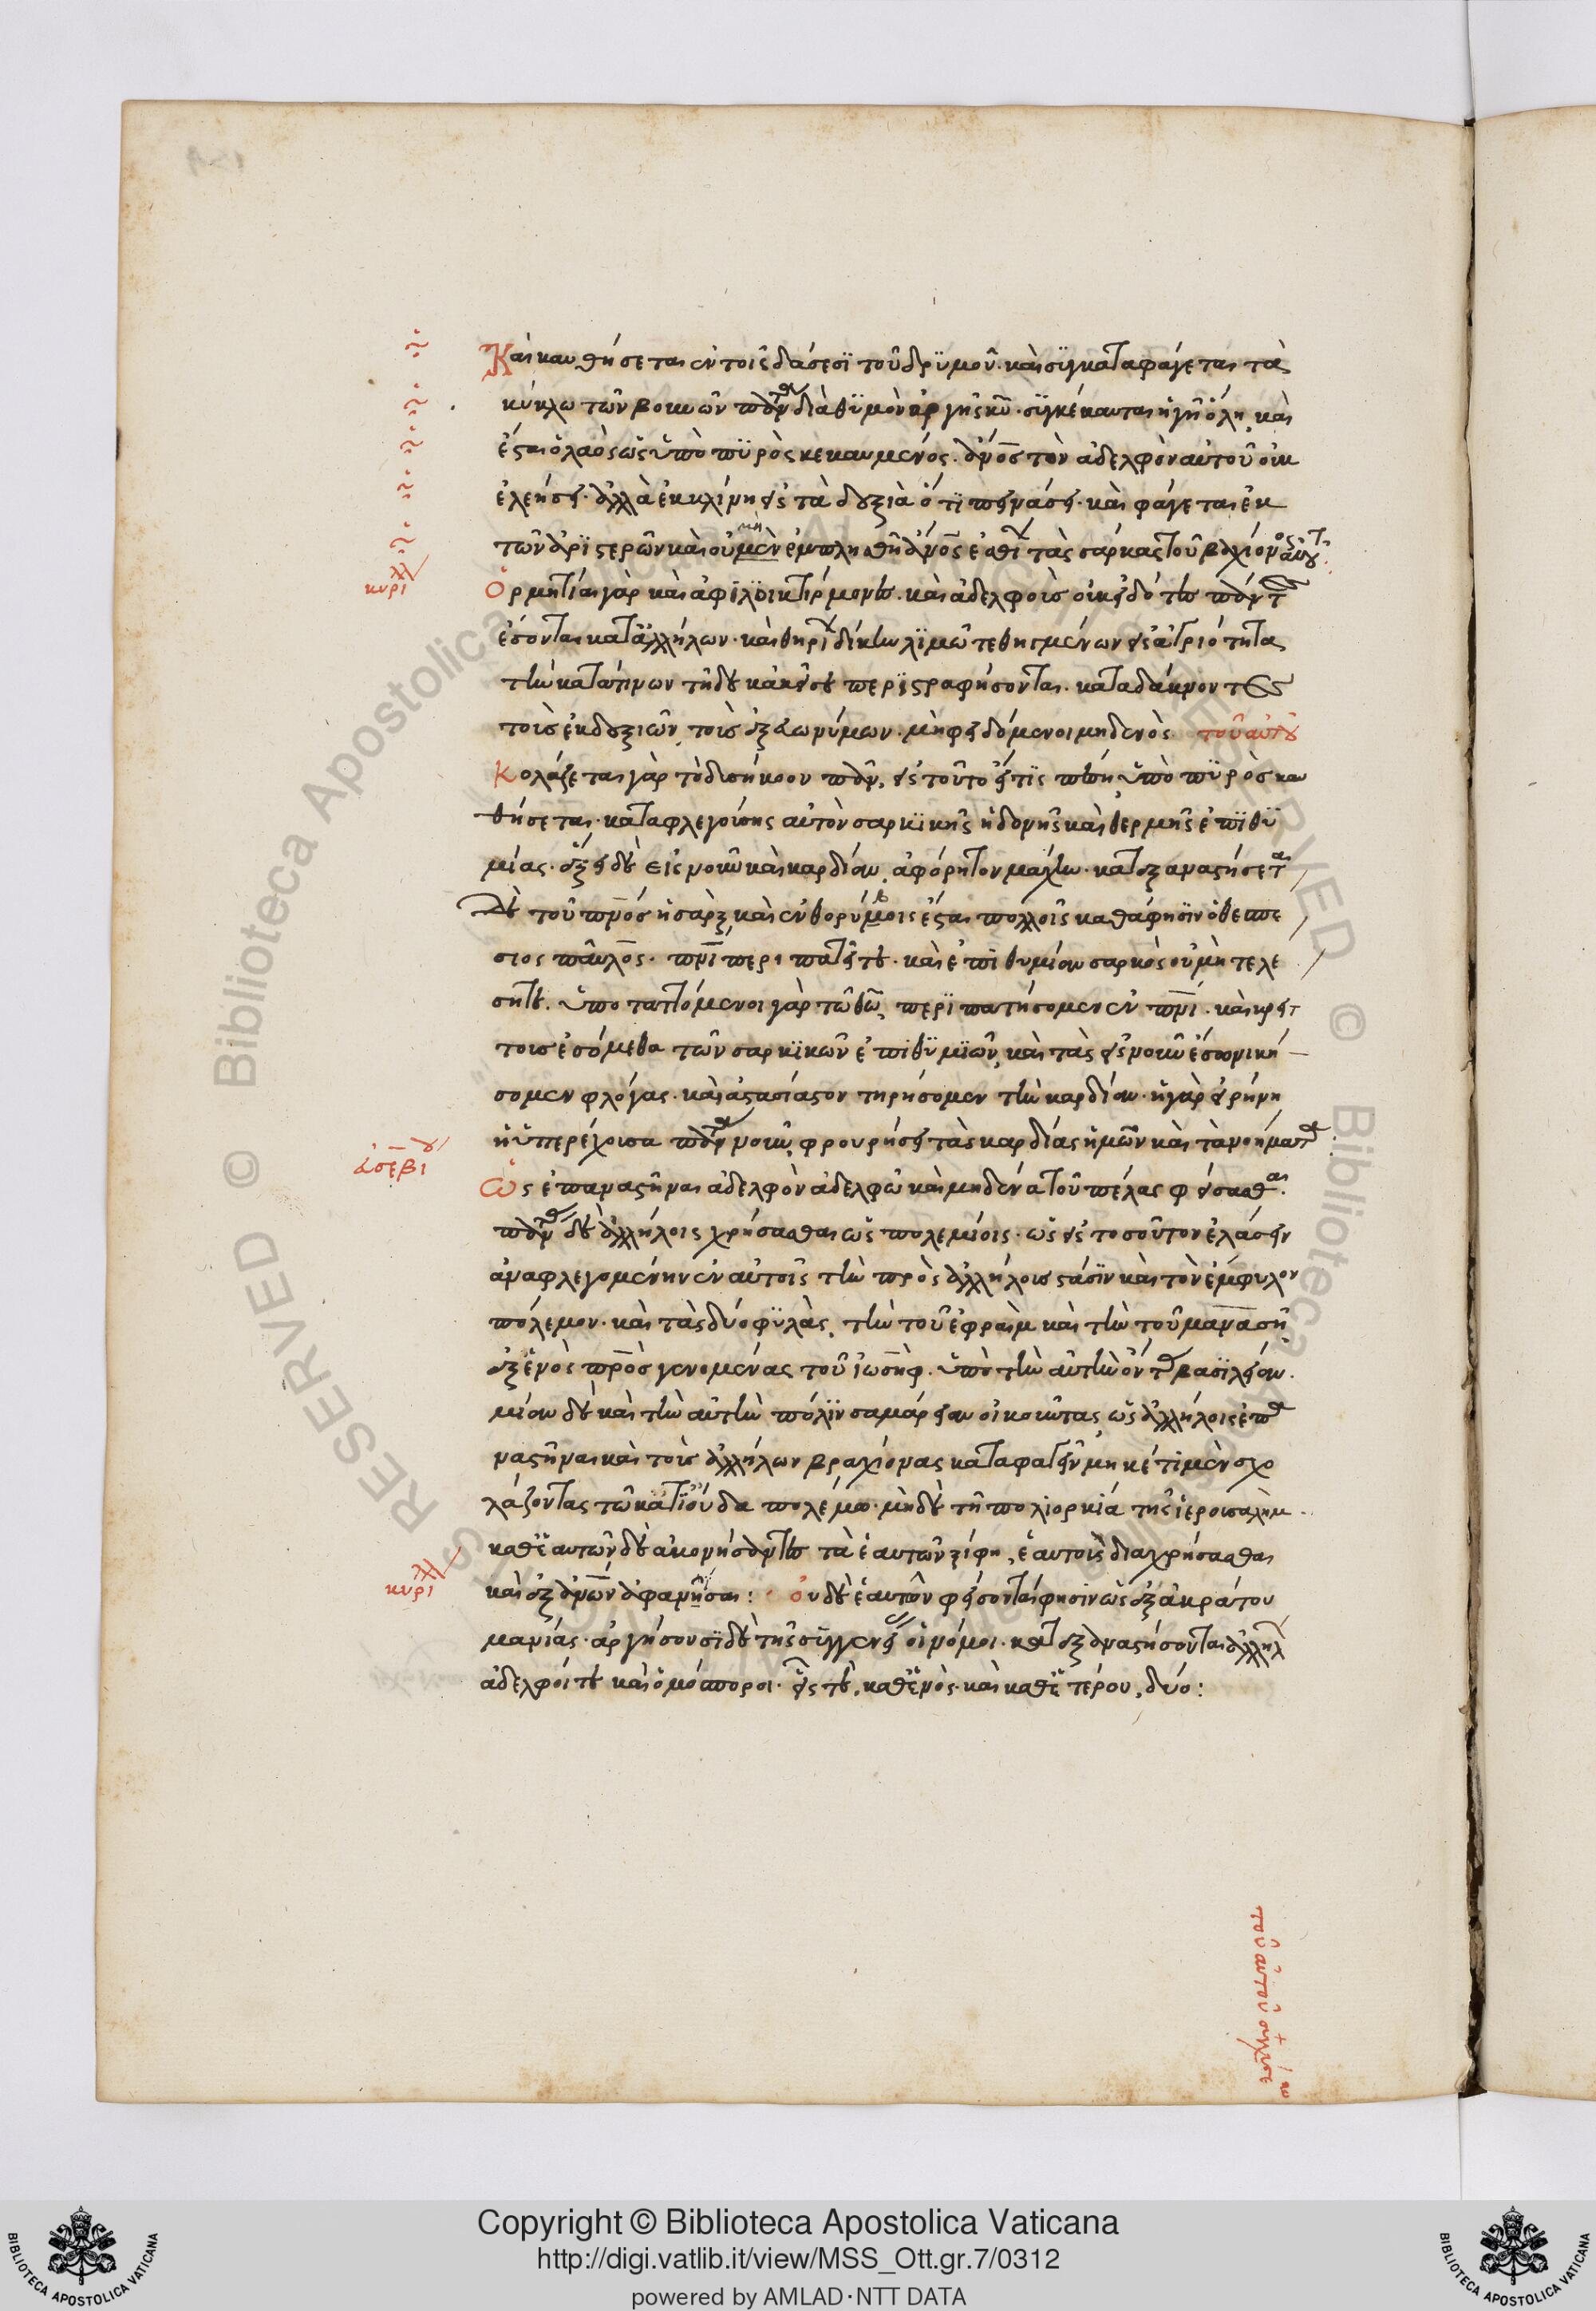 Καὶ καυθήσεται ἐν τοῖς δάσεσϊ τοῦ δρϋμοῦ· καὶ σϋγκαταφάγεται τὰ
κύκλω τῶν βουνῶν πάντα διὰ θϋμὸν ὀργῆς κυ· σϋγκέκαυται ἡ γῆ ὅλη, καὶ
ἔσται ὁ λαὸς ὡς ὑπὸ πϋρὸς κεκαυμένος· ἄνος τὸν ἀδελφὸν αὐτοῦ οὐκ
ἐλεήσει· ἀλλὰ ἐκκλίνη εἰς τὰ δεξιὰ ὅτϊ πεινάσει· καὶ φάγεται ἐκ
τῶν ἀρϊστερῶν καὶ οὐ μὲν μὴ ἐμπλησθῆ ἄνος ἐσθίων τὰς σάρκας τοῦ βραχίονος αὐτοῦ·
κυρίλλ
Ὁρμητίαι γὰρ καὶ ἀφϊλοικτίρμονες· καὶ ἀδελφοὺς οὐκ εἰδότες πάντες
ἔσονται κατ' ἀλλήλων· καὶ θηρίων δίκην λϊμῶ τεθηγμένων εἰς ἀγριότητα
τὴν κατ' ἀπίνων τῆδε κἀκεῖσε περϊστραφήσονται· καταδάκνοντες
τοὺς ἐκ δεξιῶν, τοὺς ἐξ εὐωνύμων· μὴ φειδόμενοι μηδενός τοῦ αὐτοῦ
Κολάζεται γὰρ τὸ δισήκοον πᾶν, εἰς τοῦτο εἴ τϊς πέση, ὑπὸ πϋρὸς καυ
θήσεται· καταφλεγούσης αὐτὸν σαρκϊκῆς ἡδονῆς καὶ θερμῆς ἐπϊθϋ
μίας· ἕξει δὲ εἰς νοῦν καὶ καρδίαν, ἀφόρητον μάχην· κατεξαναστήσεται
δὲ τοῦ πνος ἡ σὰρξ καὶ ἐν θορύβοις ἔσται πολλοῖς καθάφησϊν ὁ θεσπέ
σιος παῦλος· πνι περιπατεῖτε· καὶ ἐπιθυμίαν σαρκὸς οὐ μὴ τελέ
σητε· ὑποταττόμενοι γὰρ τῶ θω, περϊπατήσομεν ἐν πνι· καὶ κρείτ
τους ἐσόμεθα τῶν σαρκϊκῶν ἐπιθϋμϊῶν, καὶ τὰς εἰς νοῦν ἔσω νική
σομεν φλόγας· καὶ ἀστασίαστον τηρήσομεν τὴν καρδίαν· ἡ γὰρ εἰρήνη
ἡ ὑπερέχουσα πάντα νοῦν, φρουρήσει τὰς καρδίας ἡμῶν καὶ τὰ νοήματα·
εὐσεβίου
Ὡς ἐπαναστῆναι ἀδελφὸν ἀδελφῶ καὶ μηδένα τοῦ πέλας φείσασθαι·
πάντας δὲ ἀλλήλοις χρήσασθαι ὡς πολεμίοις· ὡς εἰς τοσοῦτον ἐλάσειν
ἀναφλεγομένην ἐν αὐτοῖς τὴν πρὸς ἀλλήλους στάσϊν καὶ τὸν ἐμφυλον
πόλεμον· καὶ τὰς δύο φϋλὰς, τὴν τοῦ ἐφραὶμ καὶ τὴν τοῦ μανασῆ,
ἐξ ἑνὸς προς γενομένας τοῦ ἰωσὴφ· ὑπὸ τὴν αὐτὴν ὄντας βασϊλείαν·
μίαν δὲ καὶ τὴν αὐτὴν πόλϊν σαμάρειαν οἰκοῦντας, ὡς ἀλλήλοις ἐπα
ναστῆναι καὶ τοὺς ἀλλήλων βραχίονας καταφαγεῖν μηκέτι μὲν σχο
λάζοντας τῶ κατ' ἰούδα πολέμω· μὴ δὲ τῆ πολϊορκία τῆς ἱερουσαλὴμ·
καθ' ἑαυτῶν δὲ ἀκονήσαντες τὰ ἑαυτῶν ξίφη, ἑαυτοὺς διαχρήσασθαι
κυρίλλ
καὶ ἐξ ανων ἀφανῆσαι: οὐδὲ ἑαυτῶν φείσονται φησὶν ὡς ἐξ ἀκράτου
μανίας· ἀργήσουσϊ δὲ τῆς συγγενείας οἱ νόμοι· κατεξαναστήσονται ἀλλήλων
ἀδελφοί τε καὶ ὁμόσποροι· εἷς τε, καθ' ἑνὸς· καὶ καθ' ἑτέρου, δύο:
Copyright © Biblioteca Apostolica Vaticana
http://digi.vatlib.it/view/MSS_Ott.gr.7/0312
powered by AMLAD·NTT DATA
BIBLIOTECA APOSTOLICA VATICANA
BIBLIOTECA APOSTOLICA VATICANA